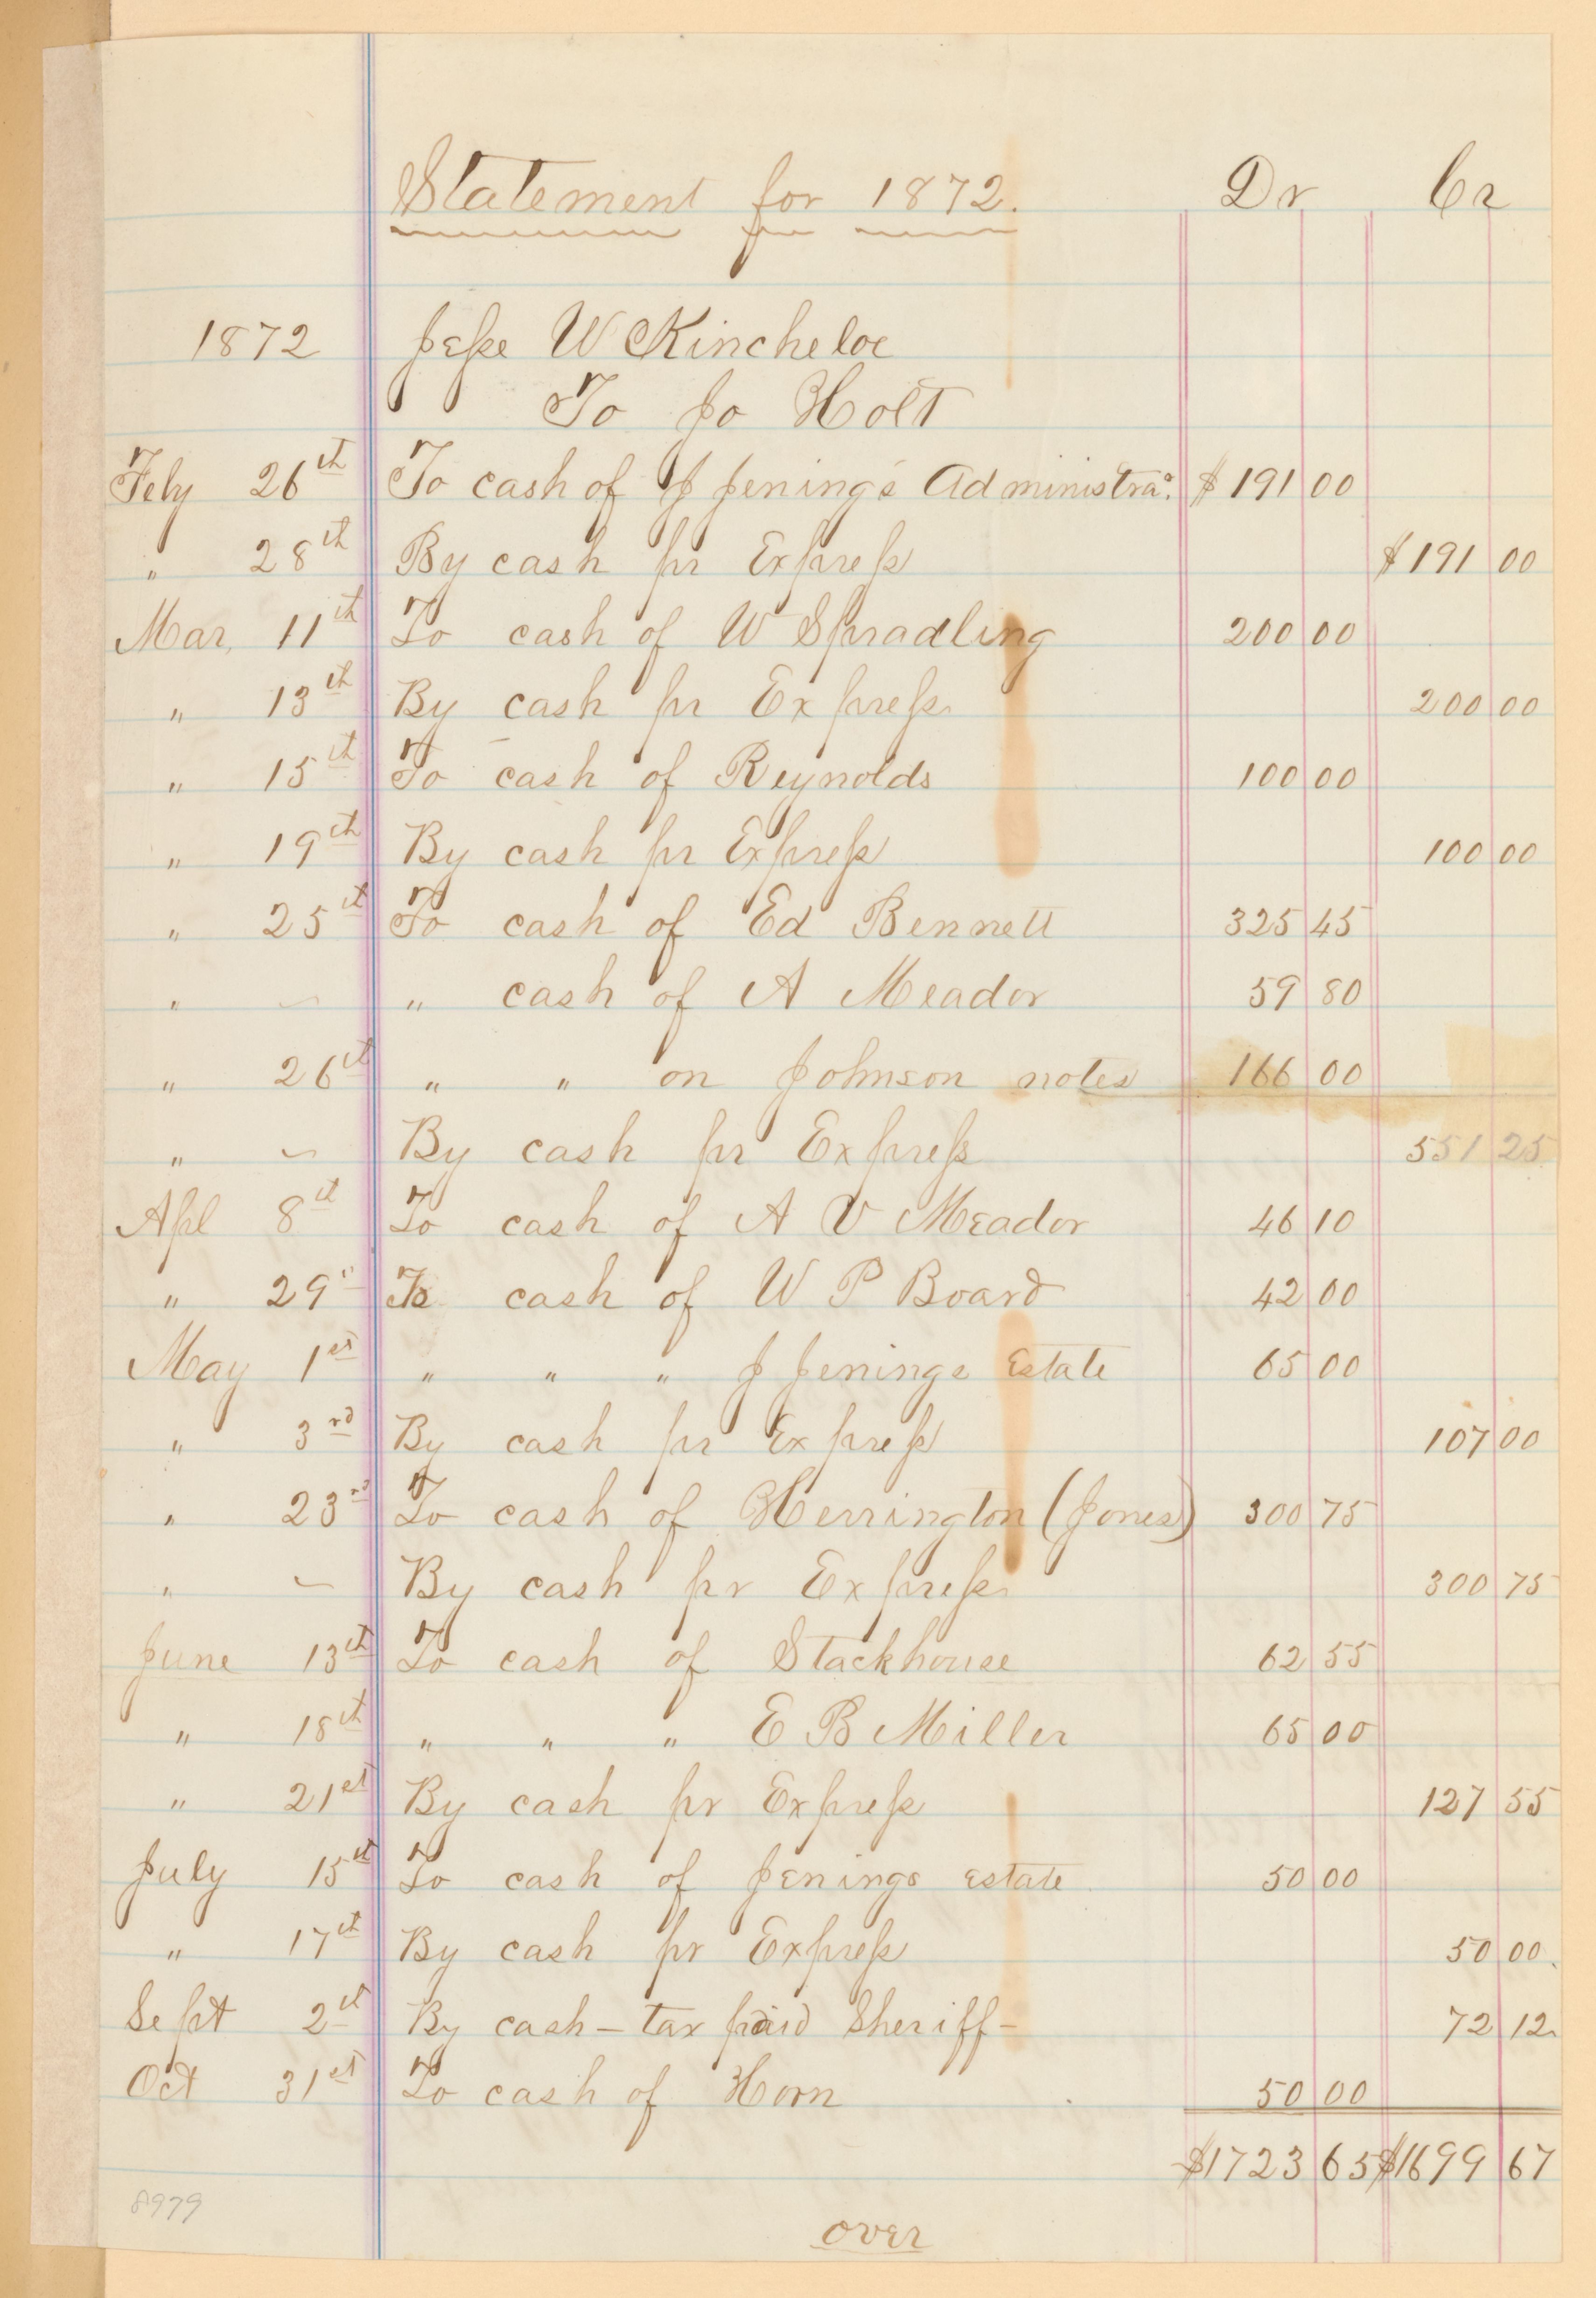 Statement for 1872. Dr Cr
1872 Jesse W Kincheloe
To Jo Holt
Feby 26th To cash of J Jening's Administra. $191 00
" 28th By cash pr Express $191 00
Mar, 11th To cash of W Spradling 200 00
" 13th By cash pr Express 200 00
" 15th To cash of Reynolds 100 00
" 19th By cash pr Express 100 00
" 25th To cash of Ed Bennett 325 45
" ~ " cash of A Meador 59 80
" 26th " " on Johnson notes 166 00
" ~ By cash pr Express 551 25
Apl 8th To cash of A V Meador 46 10
" 29" To cash of W P Board 42 00
May 1st " " " J Jenings Estate 65 00
" 3rd By cash pr Express 107 00
" 23rd To cash of Herrington (Jones) 300 75
" ~ By cash pr Express 300 75
June 13th To cash of Stackhouse 62 55
" 18th " " " E B Miller 65 00
" 21st By cash pr Express 127 55
July 15th To cash of Jenings estate 50 00
" 17th By cash pr Express 50 00.
Sept 2d By cash – tax paid Sheriff – 72 12
Oct 31st To cash of Horn 50 00
$1723 65 $1699 67
8979
over